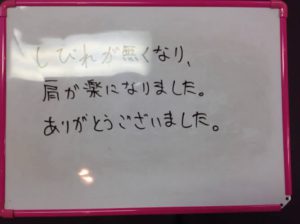 しびれが無くなり、
肩が楽になりました。
ありがとうございました。